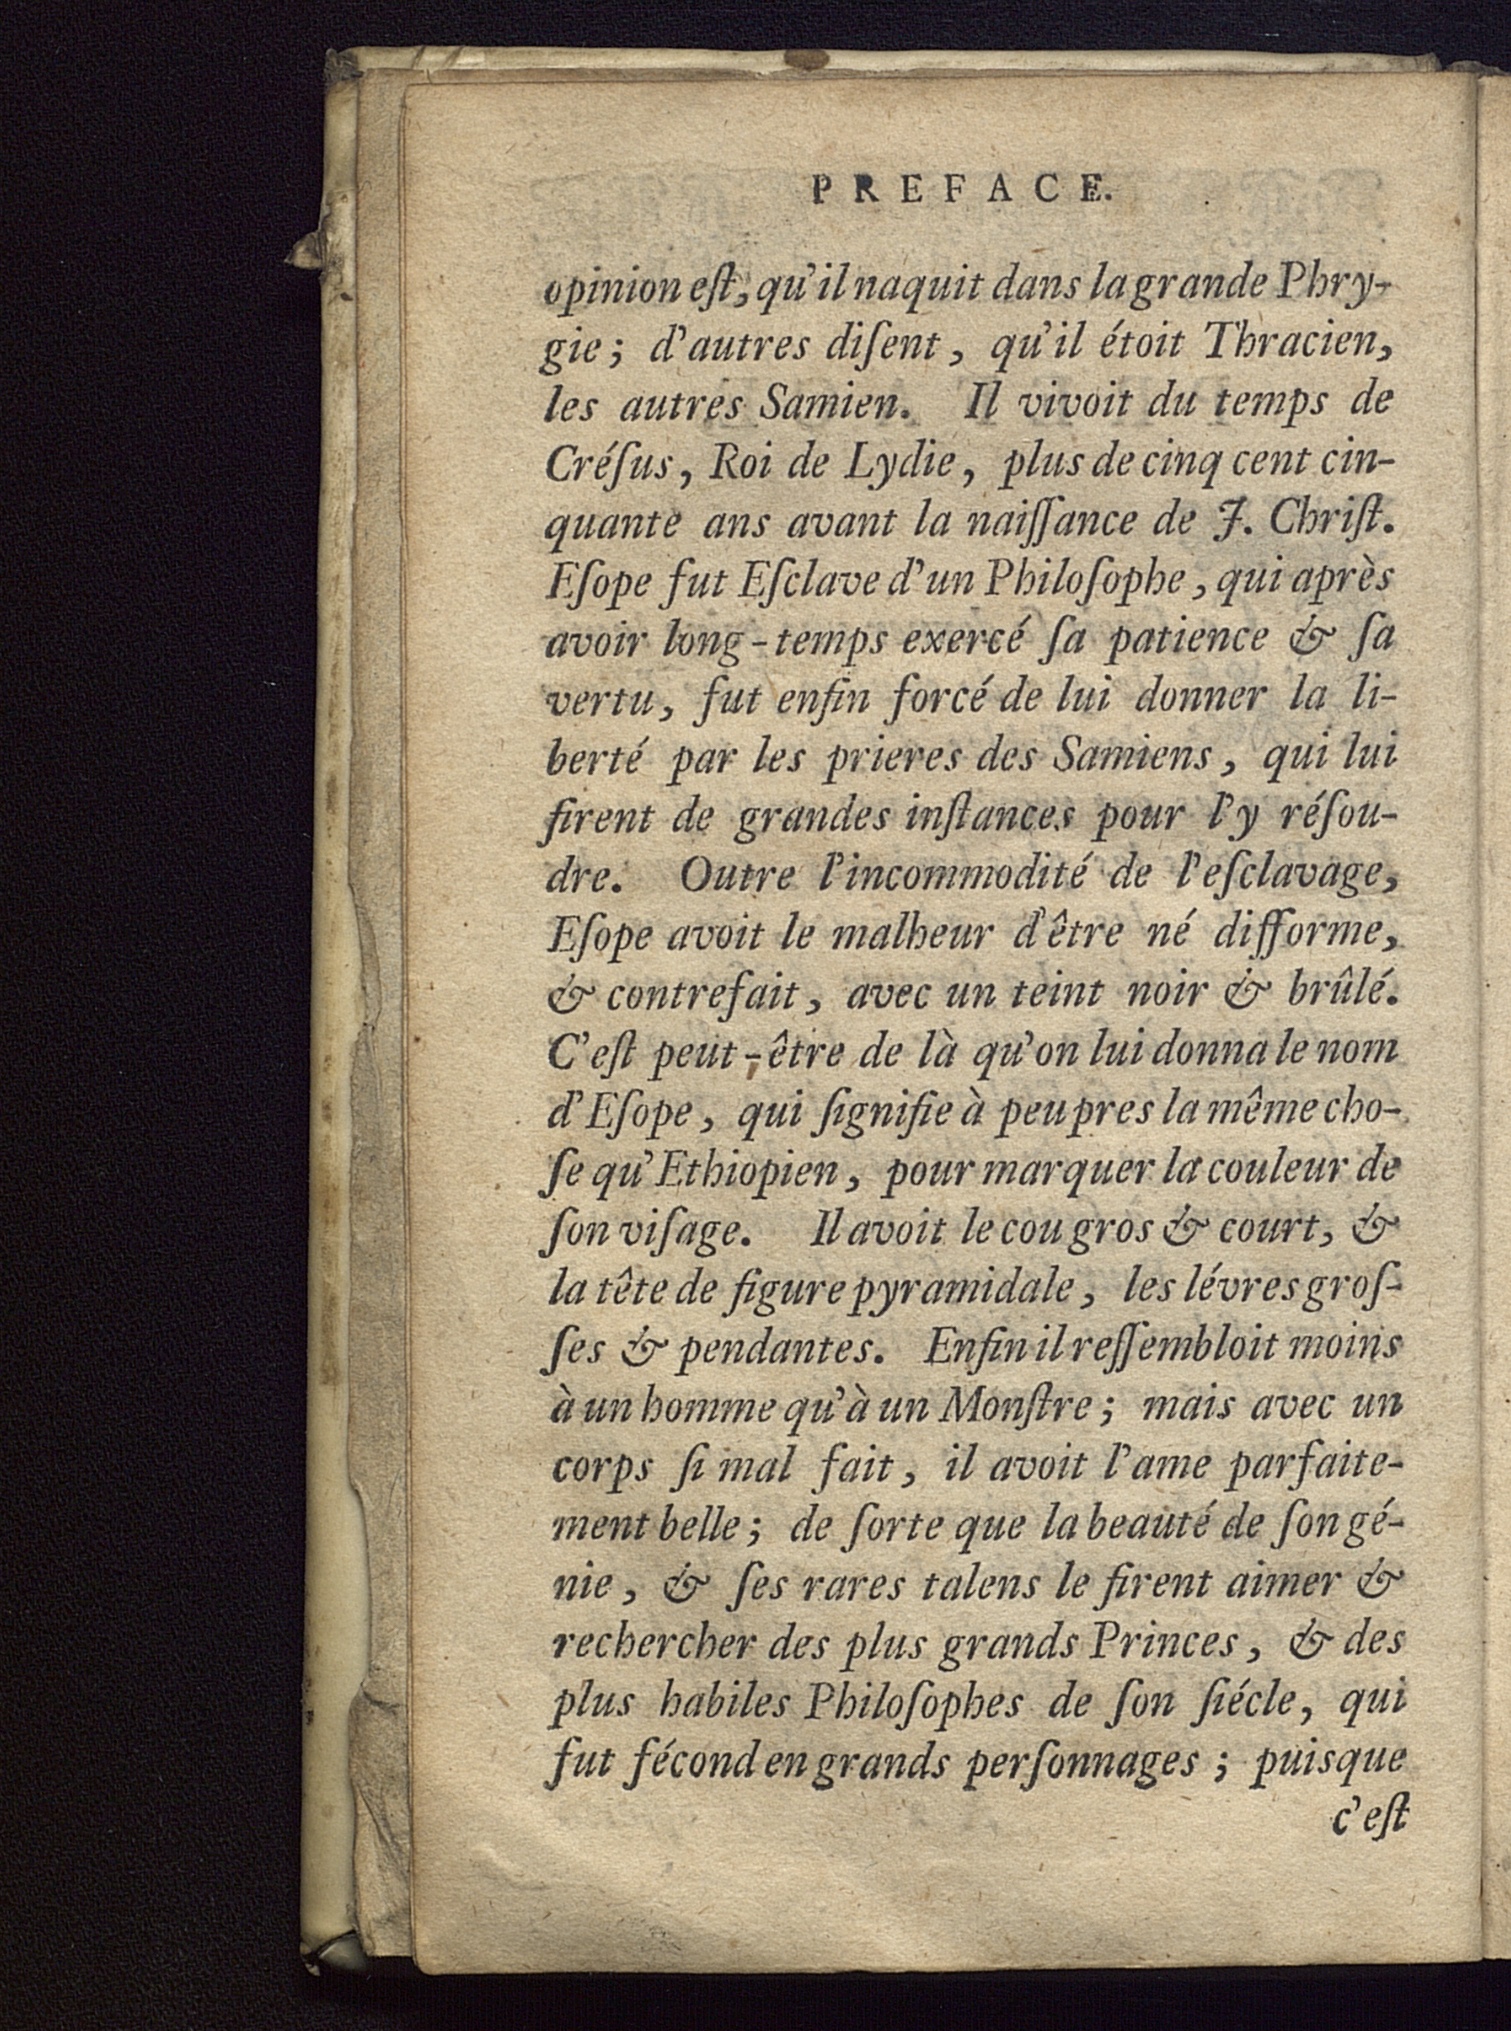 PREFACE.
opinion eſt, qu'il naquit dans la grande Phry-
gie; d'autres diſent, qu'il étoit Thracien,
les autres Samien. Il vivoit du temps de
Créſus, Roi de Lydie, plus de cinq cent cin-
quante ans avant la naiſſance de J. Chriſt.
Eſope fut Eſclave d'un Philoſophe, qui après
avoir long-temps exercé ſa patience & ſa
vertu, fut enfin forcé de lui donner la li-
berté par les prieres des Samiens, qui lui
firent de grandes inſtances pour l'y réſou-
dre. Outre l'incommodité de l'eſclavage,
Eſope avoit le malheur d'être né difforme,
& contrefait, avec un teint noir & brûlé.
C'eſt peut-être de là qu'on lui donna le nom
d'Eſope, qui ſignifie à peu pres la même cho-
ſe qu'Ethiopien, pour marquer la couleur de
ſon viſage. Il avoit le cou gros & court, &
la tête de figure pyramidale, les lévres groſ-
ſes & pendantes. Enfin il reſſembloit moins
à un homme qu'à un Monſtre; mais avec un
corps ſi mal fait, il avoit l'ame parfaite-
ment belle; de ſorte que la beauté de ſon gé-
nie, & ſes rares talens le firent aimer &
rechercher des plus grands Princes, & des
plus habiles Philoſophes de ſon ſiécle, qui
fut fécond en grands perſonnages; puisque
c'eſt